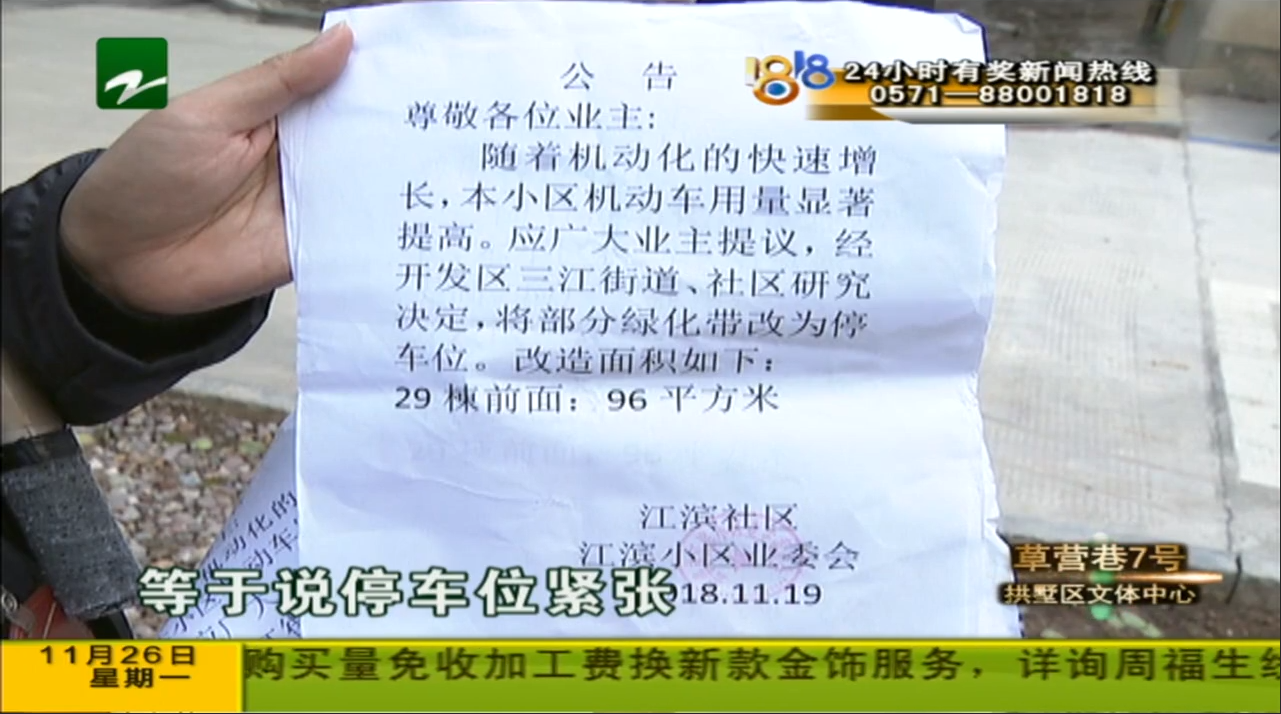 公 告
1818
24小时有奖新闻热线
0571—88001818
尊敬各位业主:
随着机动化的快速增
长,本小区机动车用量显著
提高。应广大业主提议,经
开发区三江街道、社区研究
决定,将部分绿化带改为停
车位。改造面积如下:
29 棟前面: 96 平方米
江滨社区
江滨小区业委会
018.11.19
等于说停车位紧张
草营巷7号
拱墅区文体中心
11月26日
星期一
购买量免收加工费换新款金饰服务,详询周福生